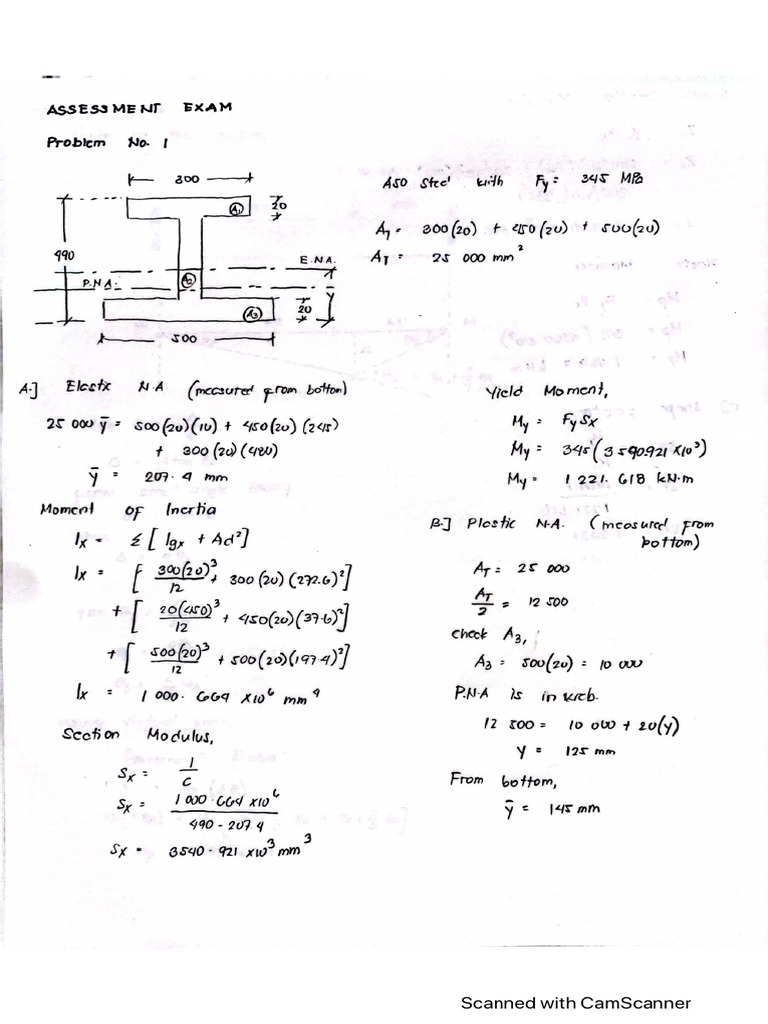 ASSESSMENT EXAM
Problem No. 1
300
20
A1
490
E.N.A.
P.N.A.
A2
ȳ
A3
20
500
A50 steel with Fy = 345 MPa
AT = 300(20) + 450(20) + 500(20)
AT = 25 000 mm²
A.] Elastic N.A (measured from bottom)
25 000 ȳ = 500(20)(10) + 450(20)(245)
+ 300(20)(480)
ȳ = 207.4 mm
Moment of Inertia
Ix = Σ [ Igx + Ad²]
Ix = [ 300(20)³/12 + 300(20)(272.6)²]
+ [ 20(450)³/12 + 450(20)(37.6)²]
+ [ 500(20)³/12 + 500(20)(197.4)²]
Ix = 1 000.664 x10⁶ mm⁴
Section Modulus,
Sx = I/C
Sx = 1 000.664 x10⁶/490 - 207.4
Sx = 3540.921 x10³ mm³
Yield Moment,
My = FySx
My = 345(3540.921 x10³)
My = 1 221.618 kN.m
B.] Plastic N.A. (measured from
bottom)
AT = 25 000
AT/2 = 12 500
check A3,
A3 = 500(20) = 10 000
P.N.A is in web.
12 500 = 10 000 + 20(y)
y = 125 mm
From bottom,
ȳ = 145 mm
Scanned with CamScanner